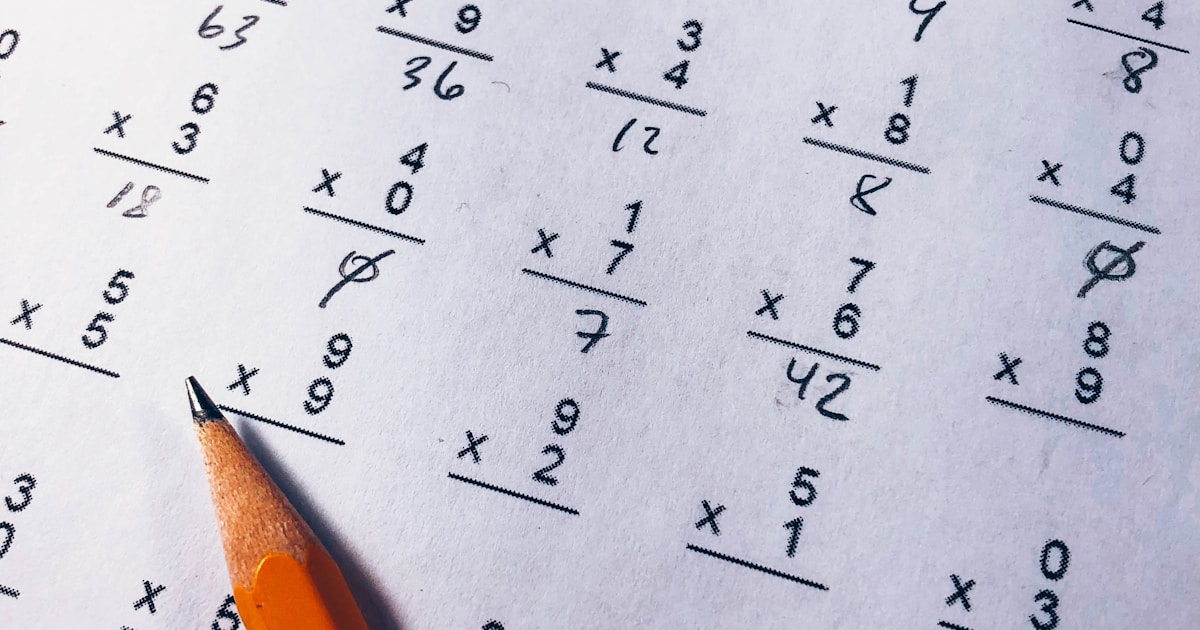 x 4
8
63
x 9
36
3
x 4
12
1
x 8
8
0
x 4
0
6
x 3
18
4
x 0
0
1
x 7
7
7
x 6
42
8
x 9
5
x 5
9
x 9
9
x 2
5
x 1
0
x 3
3
x 5